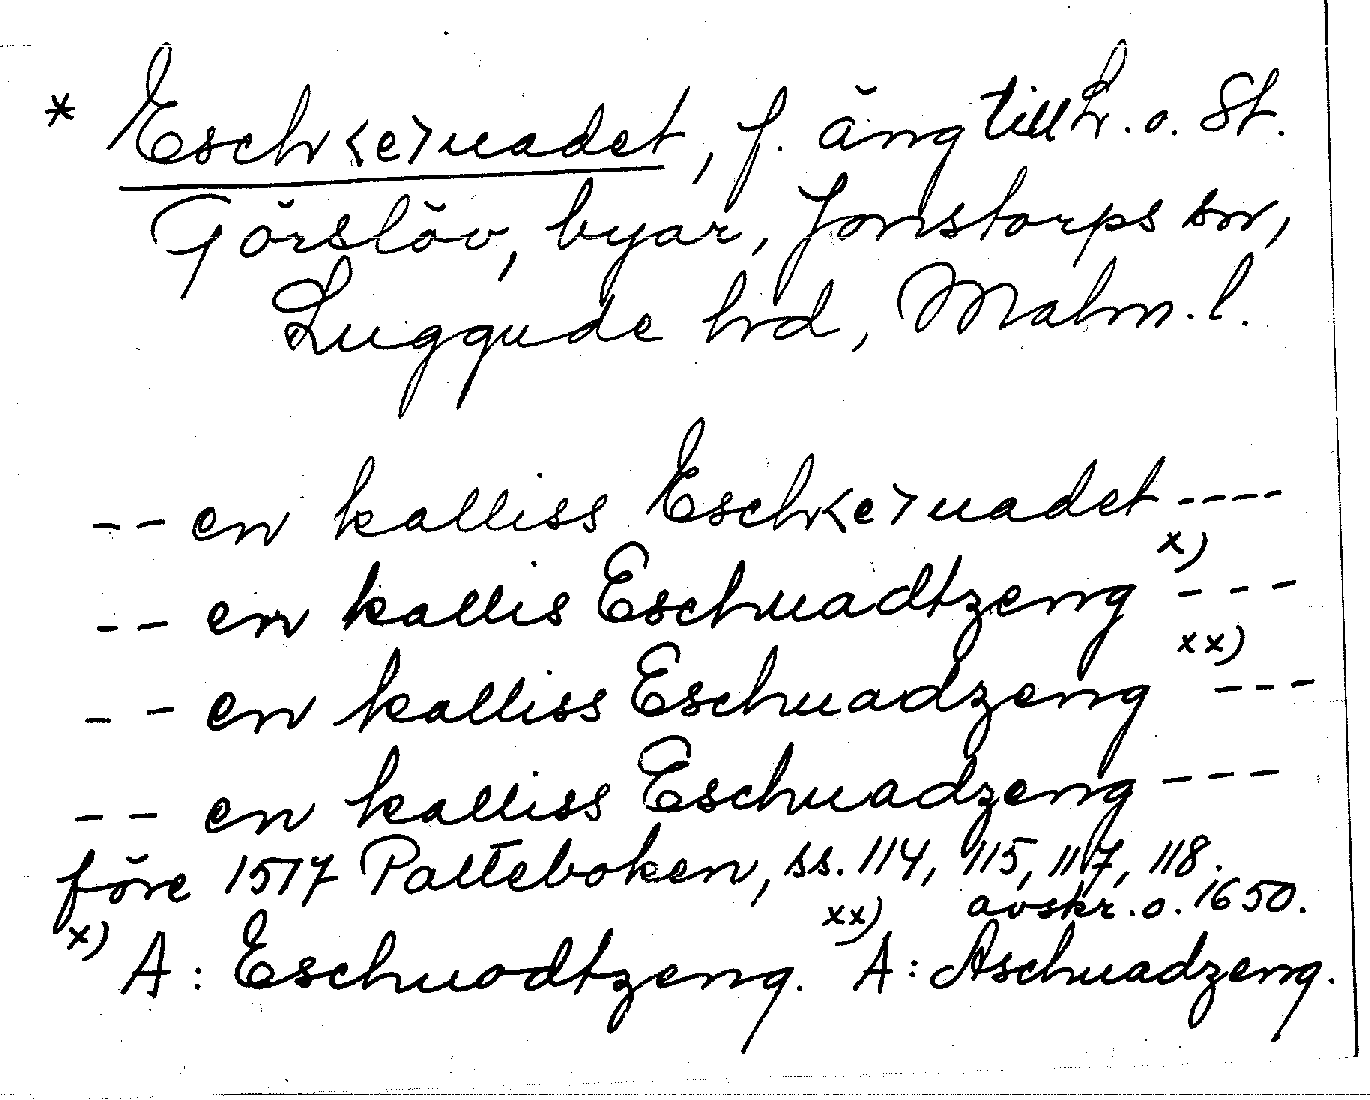 * Esch<e>uadet, f. äng till L. o. St.
Görslöv, byar, Jonstorps sn,
Luggude hrd, Malm. l.
-- en kalliss Esch<e>uadet ----
-- en kallis Eschuadtzeng x) ---
-- en kalliss Eschuadzeng xx) ---
-- en kalliss Eschuadzeng ---
före 1517 Palteboken, ss. 114, 115, 117, 118.
avskr. o. 1650.
x) A: Eschuodtzeng. xx) A: Aschuadzeng.